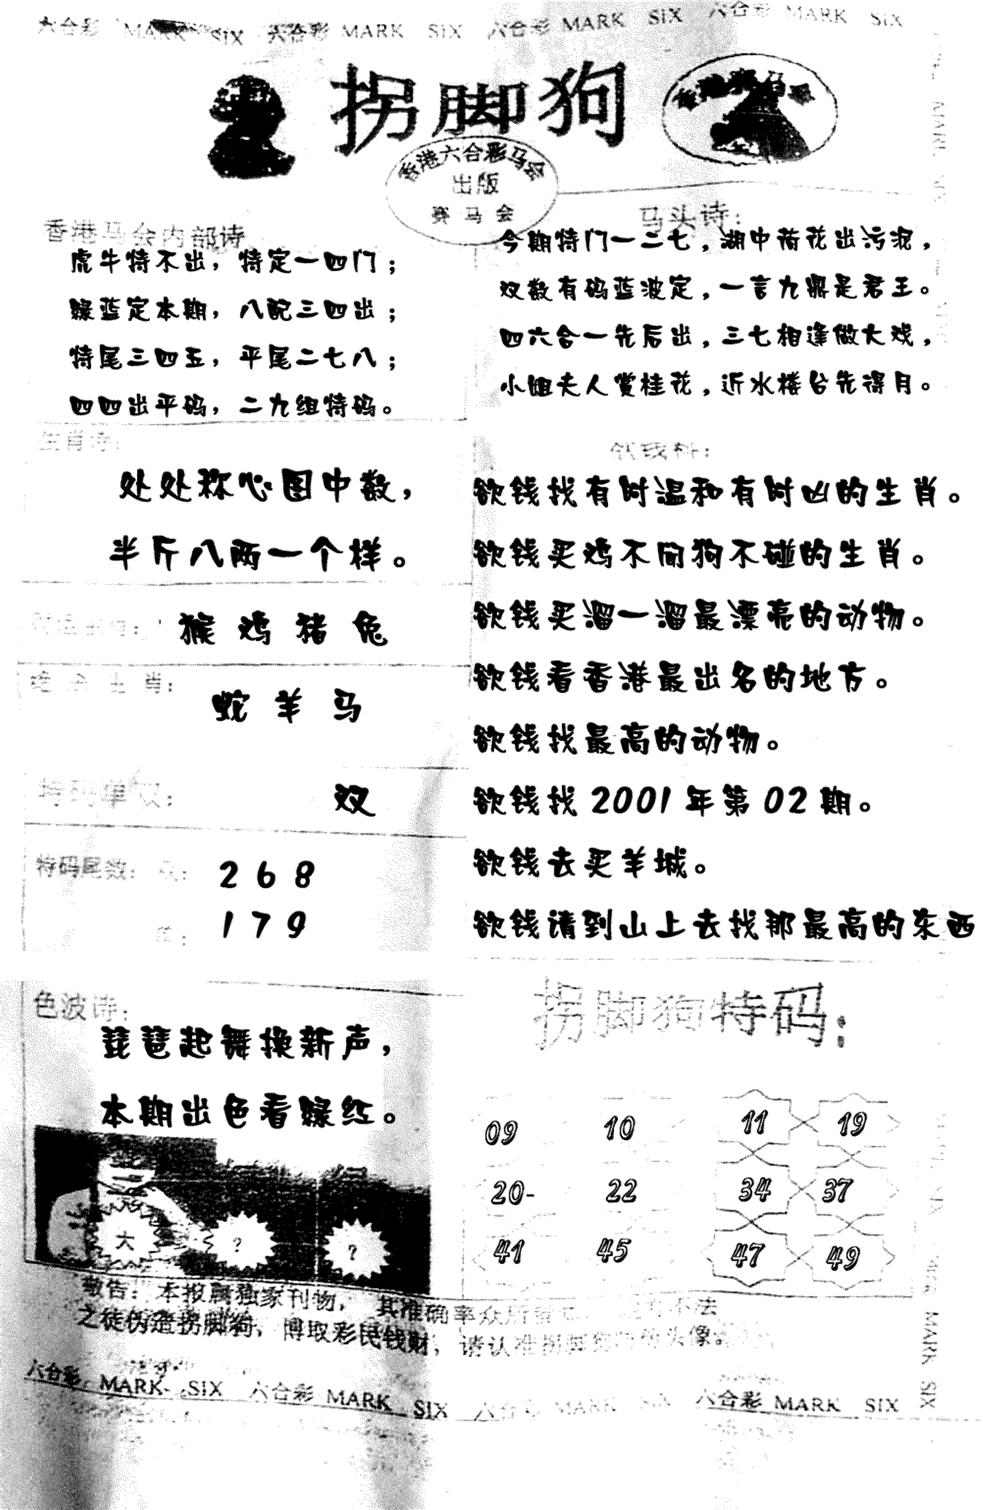 六合彩 MARK SIX 六合彩 MARK SIX 六合彩 MARK SIX 六合彩 MARK SIX
拐脚狗
香港赛马会
香港六合彩马会
出版
赛马会
香港马会内部诗
虎牛特不出，特定一四门；
绿蓝定本期，八配三四出；
特尾三四五，平尾二七八；
四四出平码，二九组特码。
马头诗：
今期特门一二七，湖中荷花出污泥，
双数有码蓝波定，一言九鼎是君王。
四六合一先后出，三七相逢做大戏，
小姐夫人赏桂花，近水楼台先得月。
生肖诗：
处处称心图中数，
半斤八两一个样。
猴 鸡 猪 兔
绝杀生肖：
蛇 羊 马
特码单双：
双
特码尾数：双：
2 6 8
单：
1 7 9
欲钱料：
欲钱找有时温和有时凶的生肖。
欲钱买鸡不闻狗不碰的生肖。
欲钱买溜一溜最漂亮的动物。
欲钱看香港最出名的地方。
欲钱找最高的动物。
欲钱找 2001 年第 02 期。
欲钱去买羊城。
欲钱请到山上去找那最高的东西
色波诗：
琵琶起舞换新声，
本期出色看绿红。
大 ? ?
拐脚狗特码：
09 10 11 19
20- 22 34 37
41 45 47 49
敬告：本报属独家刊物，其准确率众所
不法
之徒伪造拐脚狗，博取彩民钱财，请认准拐脚狗
头像。
六合彩 MARK SIX 六合彩 MARK SIX 六合彩 MARK SIX 六合彩 MARK SIX
MARK SIX